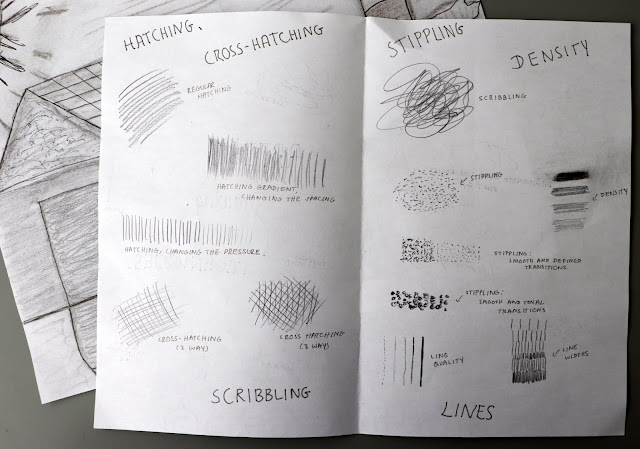 HATCHING.
CROSS-HATCHING
REGULAR
HATCHING
HATCHING GRADIENT,
CHANGING THE SPACING
HATCHING, CHANGING THE PRESSURE.
CROSS-HATCHING
(2 WAY)
CROSS HATCHING
(3 WAY)
SCRIBBLING
STIPPLING
DENSITY
SCRIBBLING
STIPPLING
DENSITY
STIPPLING:
SMOOTH AND DEFINED
TRANSITIONS
STIPPLING:
SMOOTH AND TONAL
TRANSITIONS
LINE
QUALITY
LINE
WIDTHS
LINES